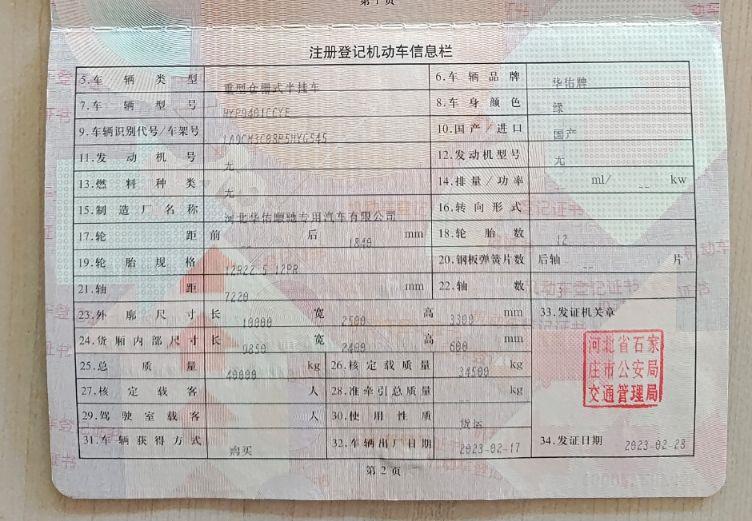 第1页
注册登记机动车信息栏
5.车辆类型 重型仓栅式半挂车 6.车辆品牌 华佑牌
7.车辆型号 HYP9401CCYE 8.车身颜色 绿
9.车辆识别代号/车架号 10.国产/进口 国产
11.发动机号 无 12.发动机型号 无
13.燃料种类 无 14.排量/功率 ml/ -- kw
15.制造厂名称 河北华佑顺驰专用汽车有限公司 16.转向形式
17.轮距 前 后 1840 mm 18.轮胎数 12
19.轮胎规格 12R22.5 12PR 20.钢板弹簧片数 后轴 -- 片
21.轴距 7220 mm 22.轴数
23.外廓尺寸 长 10000 宽 2500 高 3300 mm 33.发证机关章
24.货厢内部尺寸 长 9850 宽 2400 高 600 mm
河北省石家
庄市公安局
交通管理局
25.总质量 40000 kg 26.核定载质量 34500 kg
27.核定载客 人 28.准牵引总质量 kg
29.驾驶室载客 人 30.使用性质 货运
31.车辆获得方式 购买 32.车辆出厂日期 2023-02-17 34.发证日期 2023-02-23
第2页